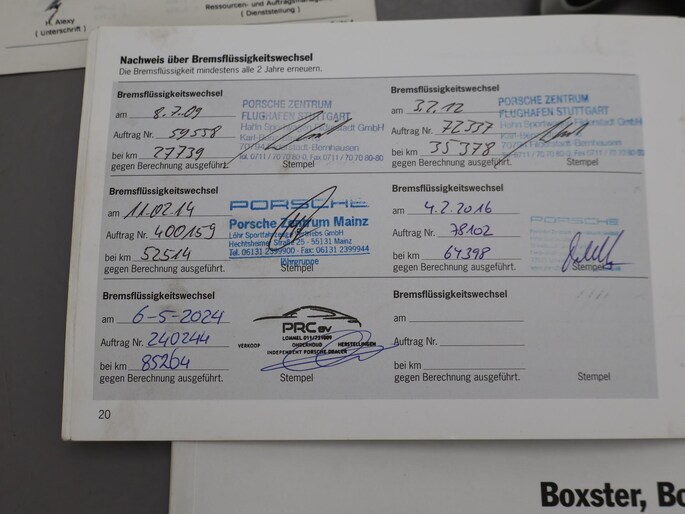 H. Alexy
( Unterschrift )
Ressourcen- und Auftragsmanagement
( Dienststellung )
Nachweis über Bremsflüssigkeitswechsel
Die Bremsflüssigkeit mindestens alle 2 Jahre erneuern.
Bremsflüssigkeitswechsel
am 8.7.09
Auftrag Nr. 59558
bei km 27739
gegen Berechnung ausgeführt.
Stempel
PORSCHE ZENTRUM
FLUGHAFEN STUTTGART
Hahn Sportwagen GmbH
Tel. 0711 / 70 70 80-0, Fax 0711 / 70 70 80-80
Bremsflüssigkeitswechsel
am 3.2.12
Auftrag Nr. 72337
bei km 35378
gegen Berechnung ausgeführt.
Stempel
PORSCHE ZENTRUM
FLUGHAFEN STUTTGART
Bremsflüssigkeitswechsel
am 11.02.14
Auftrag Nr. 400159
bei km 52514
gegen Berechnung ausgeführt.
Stempel
PORSCHE
Porsche Zentrum Mainz
Löhr Sportfahrzeug Vertriebs GmbH
Hechtsheimer Straße 25 - 55131 Mainz
Tel. 06131 2399900 - Fax: 06131 2399944
löhrgruppe
Bremsflüssigkeitswechsel
am 4.2.2016
Auftrag Nr. 78102
bei km 64398
gegen Berechnung ausgeführt.
Stempel
PORSCHE
Bremsflüssigkeitswechsel
am 6-5-2024
Auftrag Nr. 240244
bei km 85264
gegen Berechnung ausgeführt.
Stempel
PRC BV
VERKOOP ONDERHOUD HERSTELLINGEN
INDEPENDENT PORSCHE DEALER
Bremsflüssigkeitswechsel
am
Auftrag Nr.
bei km
gegen Berechnung ausgeführt.
Stempel
20
Boxster, Bo